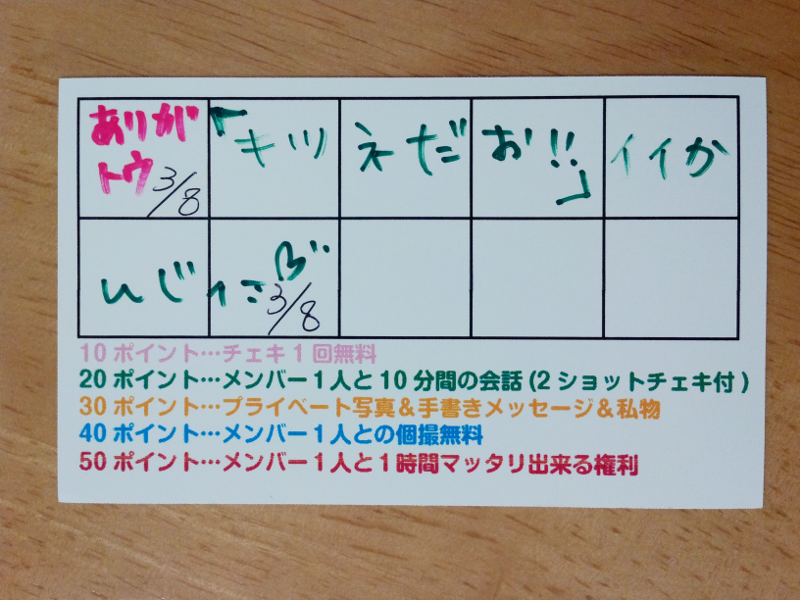 ありが
トウ
3/8
「キツネだお!!」イイか
んじだ
3/8
10ポイント…チェキ1回無料
20ポイント…メンバー1人と10分間の会話(2ショットチェキ付)
30ポイント…プライベート写真&手書きメッセージ&私物
40ポイント…メンバー1人との個撮無料
50ポイント…メンバー1人と1時間マッタリ出来る権利